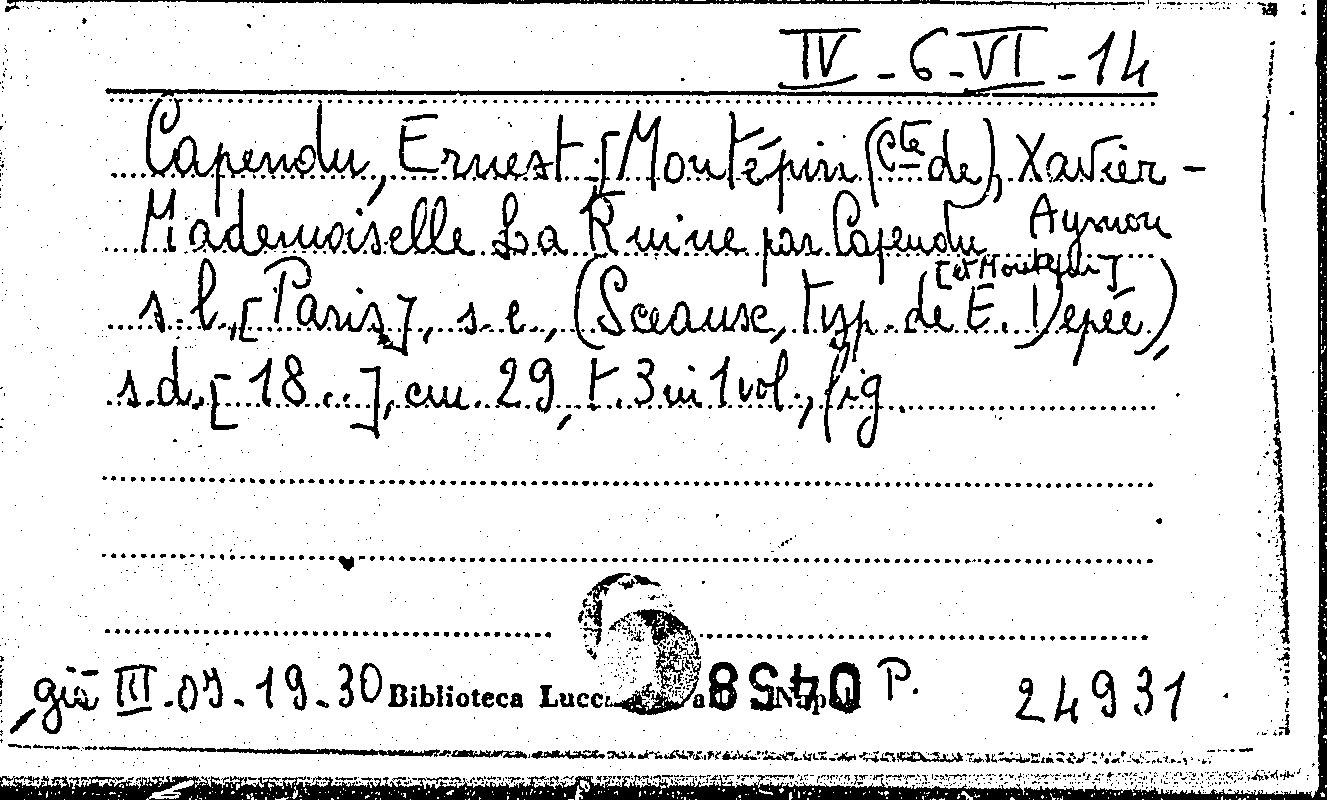 IV - 6 - VI - 14
Capendu, Ernest [Montépin (Cte de), Xavier -
Aymon
Mademoiselle La Ruine par Capendu
[et Montépin]
s. l. [Paris], s. e., (Sceaux, typ. de E. Depée),
s. d. [18..], cm. 29, t. 3 in 1 vol., fig
già III - 07 - 19 - 30 Biblioteca P. 24931